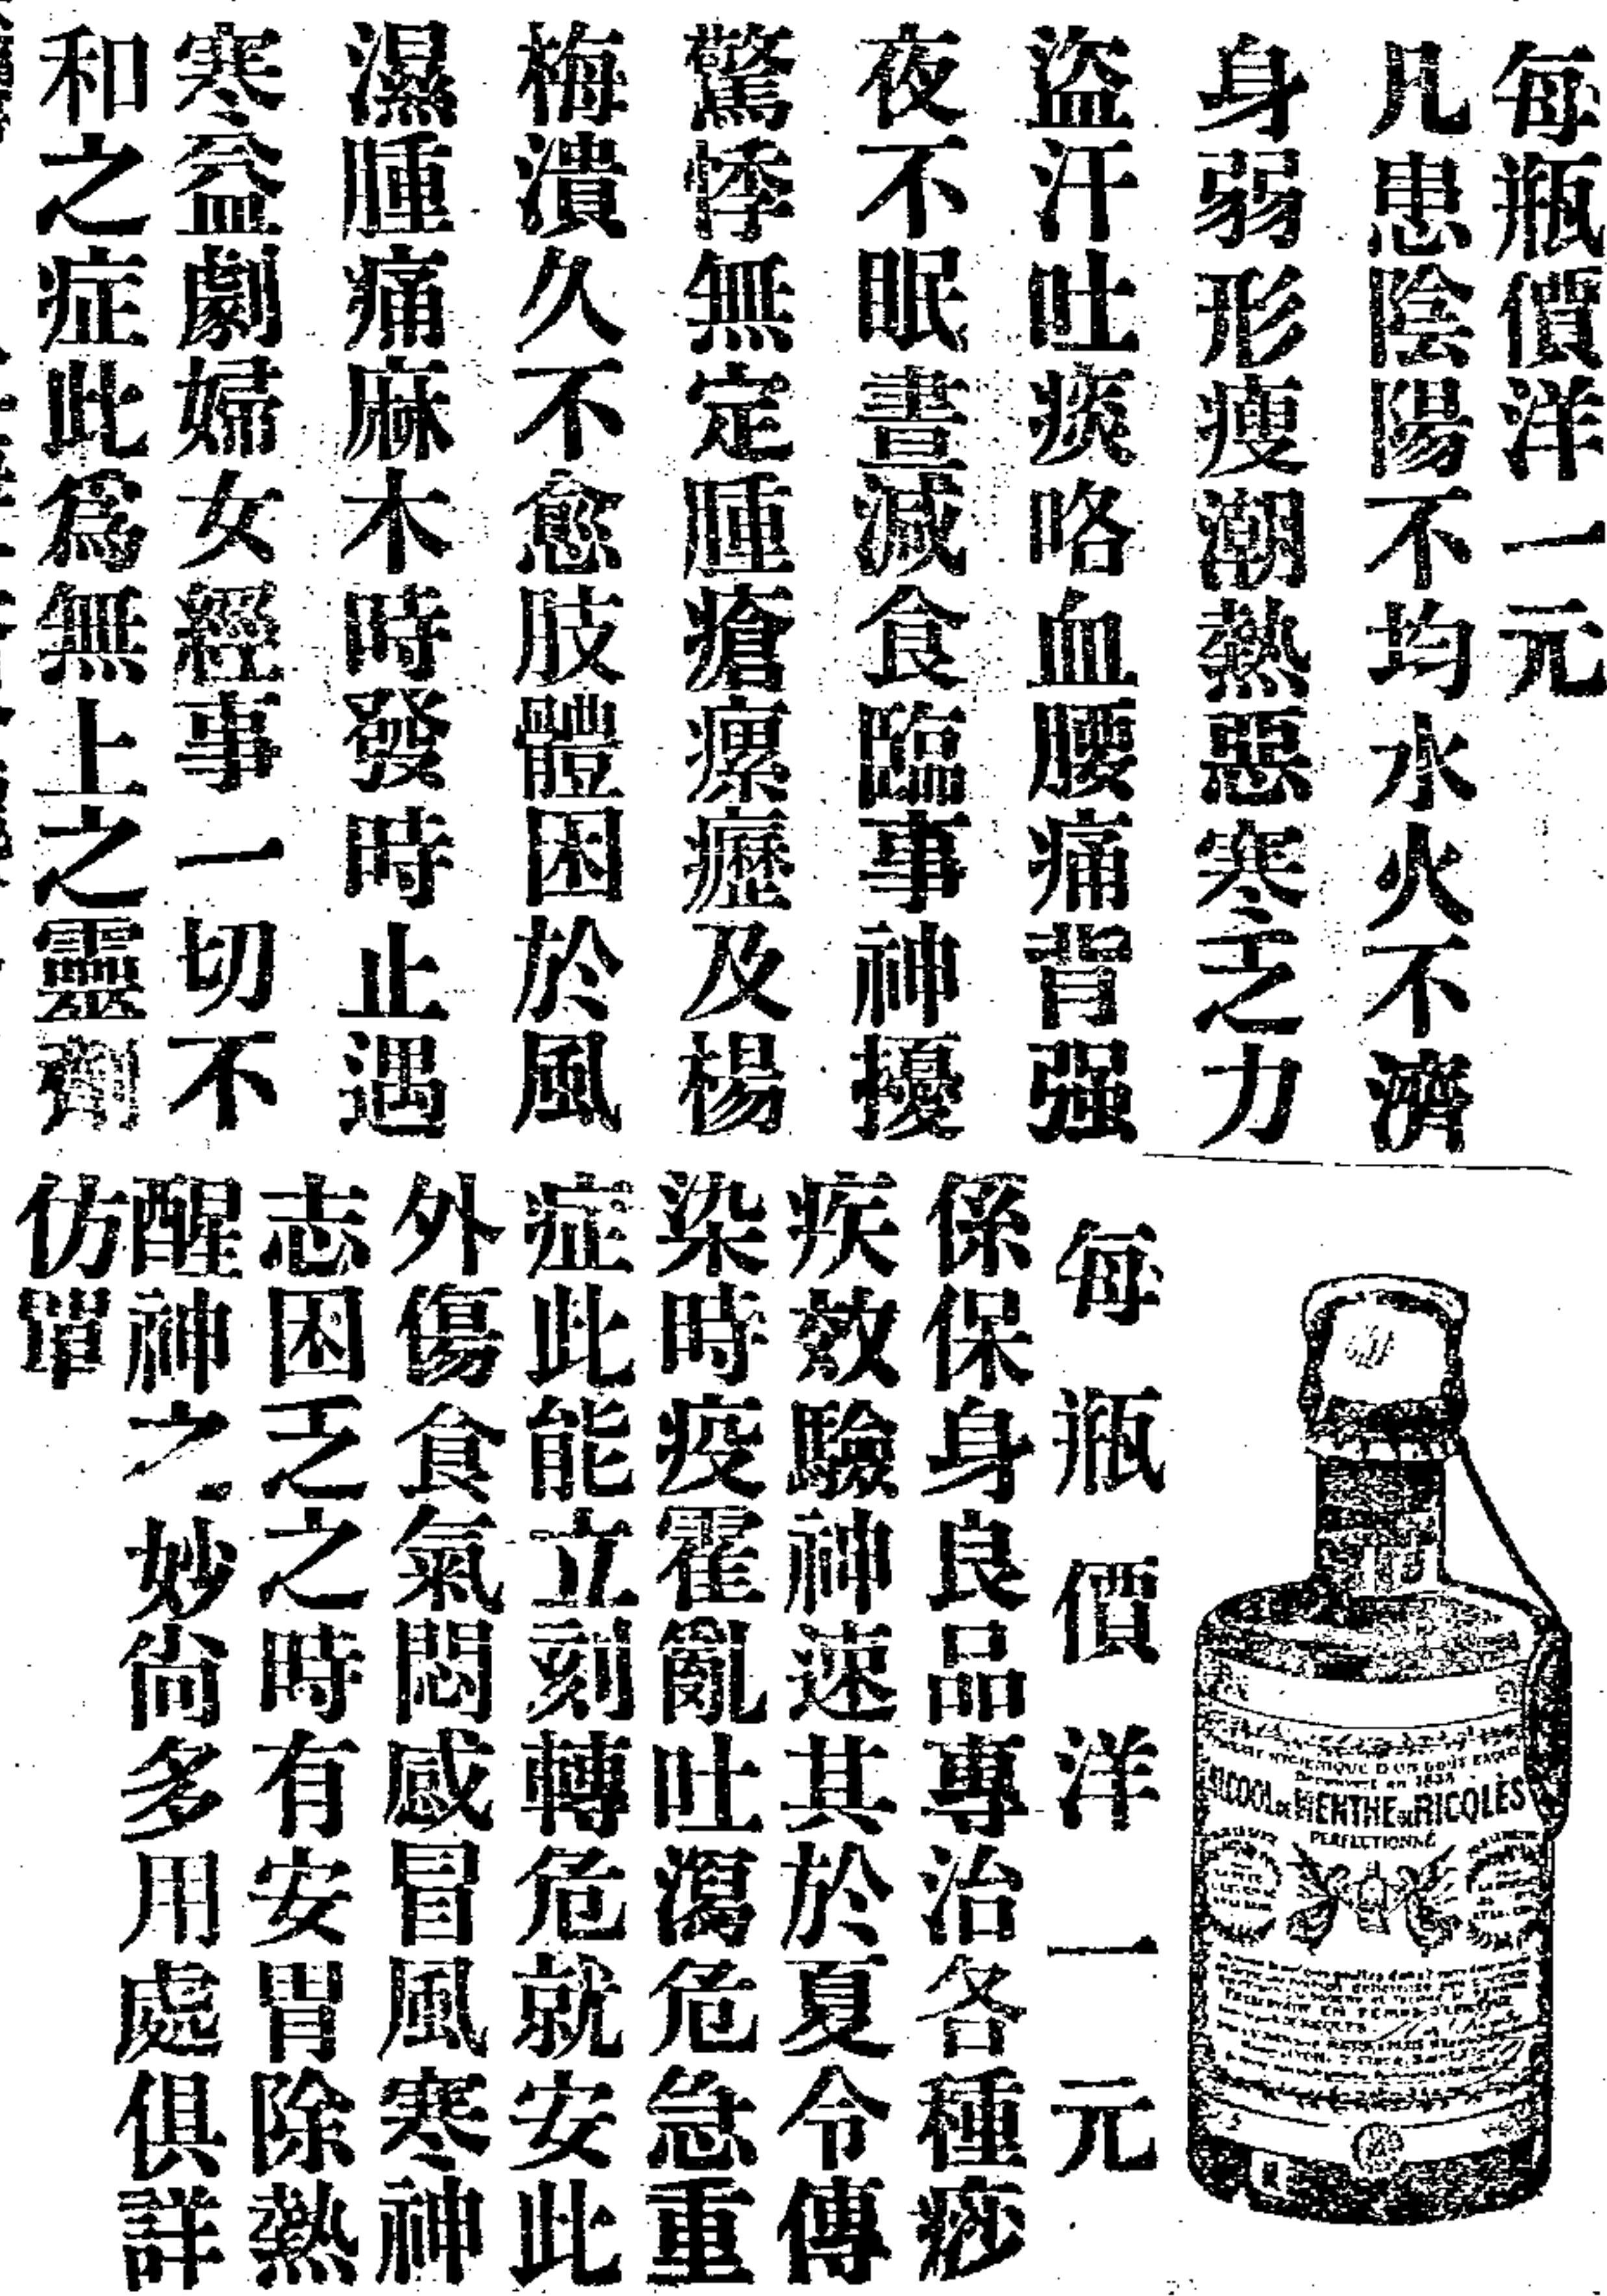 每瓶價洋一元
凡患陰陽不均水火不濟
身弱形瘦潮熱惡寒乏力
盜汗吐痰咯血腰痛背强
夜不眠晝減食臨事神擾
驚悸無定腫瘡瘰癧及楊
梅潰久不愈肢體困於風
濕腫痛麻木時發時止遇
寒益劇婦女經事一切不
和之症此爲無上之靈劑
每瓶價洋一元
係保身良品專治各種痧
疾效驗神速其於夏令傳
染時疫霍亂吐瀉危急重
症此能立刻轉危就安此
外傷食氣悶感冒風寒神
志困乏之時有安胃除熱
醒神之妙尙多用處俱詳
仿單
ALCOOL DE MENTHE DE RICQLÈS
PERFECTIONNÉ